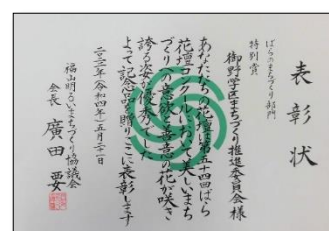 表彰状
ばらのまちづくり部門
特別賞
御野学区まちづくり推進委員会様
あなたたちの花壇は第五十四回ばら
花壇コンクールにおいて美しいまち
づくりの意欲と善意の花が咲き
誇る姿が優秀でした
よって記念品を贈りここに表彰します
二〇二二年(令和四年)五月二十一日
福山明るいまちづくり協議会
会長 廣田要